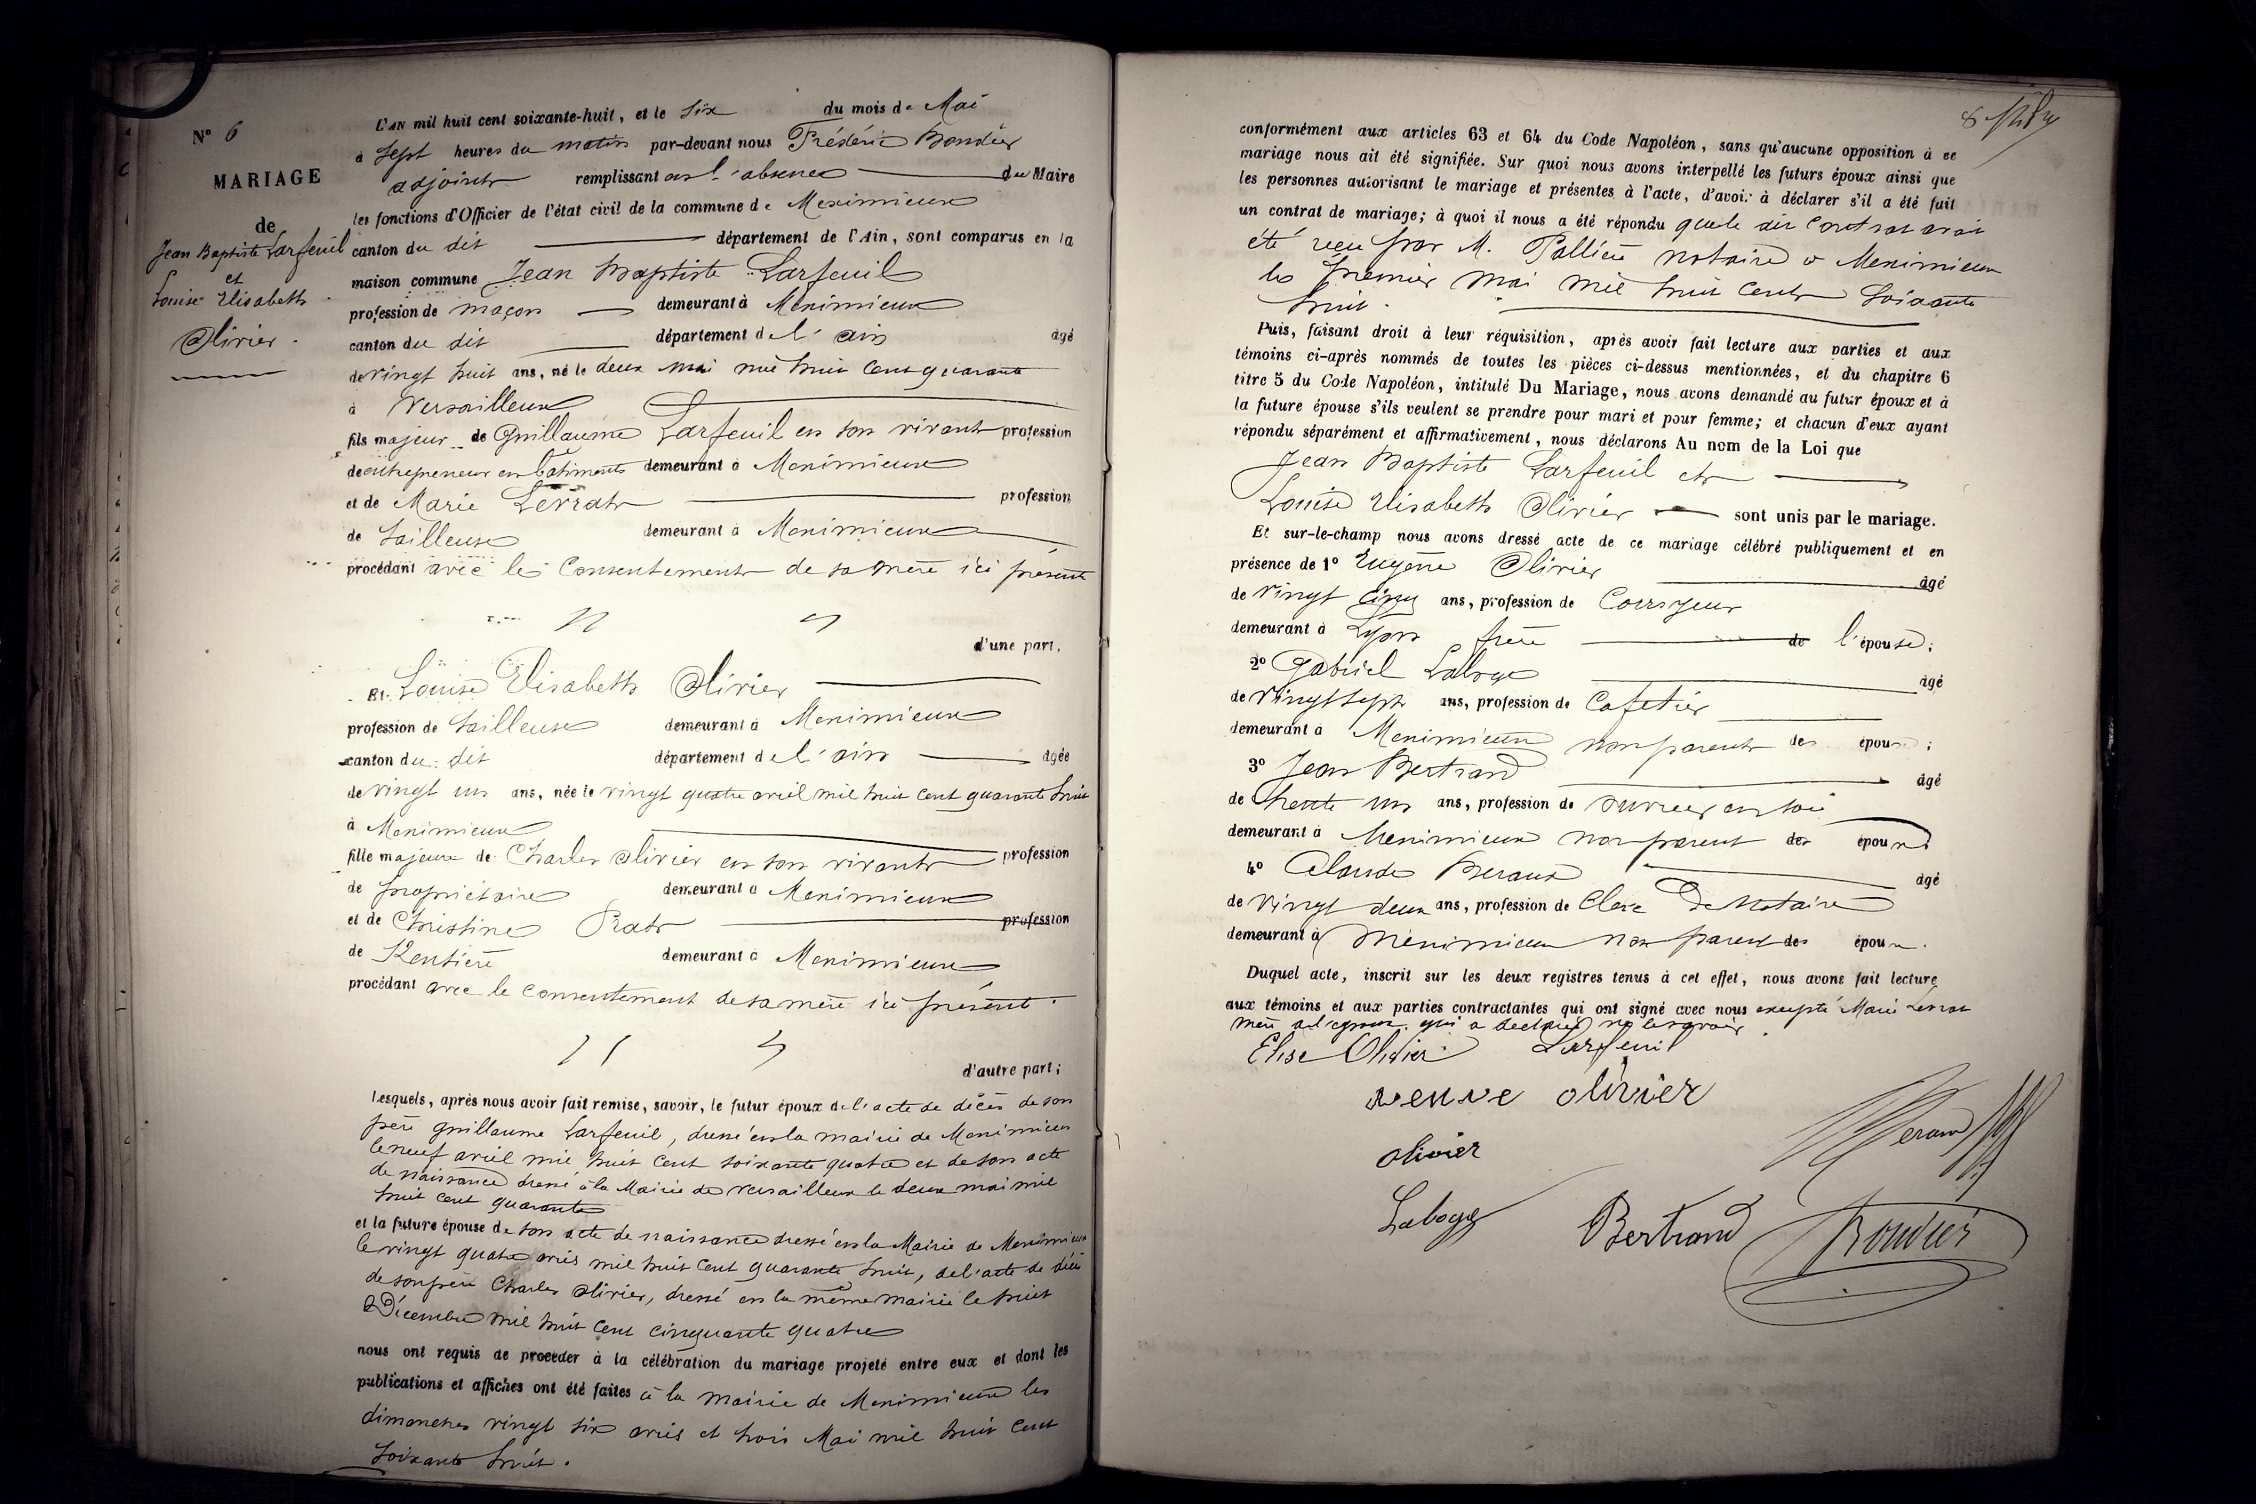 N° 6
MARIAGE
de
Jean Baptiste Larfeuil
et
Louise Elisabeth
Olivier.
L'AN mil huit cent soixante-huit, et le Six du mois de Mai
à Sept heures du matin par-devant nous Frédéric Bouvier
adjoint remplissant en l'absence du Maire
les fonctions d'Officier de l'état civil de la commune de Meximieux
canton du dit département de l'Ain, sont comparus en la
maison commune Jean Baptiste Larfeuil
profession de maçon demeurant à Meximieux
canton du dit département de l'ain âgé
de vingt huit ans, né le deux mai mil huit cent quarante
à Versailleux
fils majeur de Guillaume Larfeuil en son vivant profession
de entrepreneur en bâtiments demeurant à Meximieux
et de Marie Levrat profession
de tailleuse demeurant à Meximieux
procédant avec le Consentement de sa mère ici présente
d'une part.
Et Louise Elisabeth Olivier
profession de tailleuse demeurant à Meximieux
canton du dit département de l'ain âgée
de vingt un ans, née le vingt quatre avril mil huit cent quarante huit
à Meximieux
fille majeure de Charles Olivier en son vivant profession
de propriétaire demeurant à Meximieux
et de Christine Prat profession
de Rentière demeurant à Meximieux
procédant avec le consentement de sa mère ici présente.
d'autre part;
Lesquels, après nous avoir fait remise, savoir, le futur époux de l'acte de décès de son
père guillaume Larfeuil, dressé en la mairie de Meximieux
le neuf avril mil huit cent soixante quatre et de son acte
de naissance dressé à la Mairie de Versailleux le deux mai mil
huit cent quarante
et la future épouse de son acte de naissance dressé en la Mairie de Meximieux
le vingt quatre avril mil huit cent quarante huit, de l'acte de décès
de son père Charles Olivier, dressé en la même mairie le huit
Décembre mil huit cent cinquante quatre
nous ont requis de procéder à la célébration du mariage projeté entre eux et dont les
publications et affiches ont été faites à la mairie de Meximieux les
dimanches vingt six avril et trois Mai mil huit cent
soixante huit.
conformément aux articles 63 et 64 du Code Napoléon, sans qu'aucune opposition à ce
mariage nous ait été signifiée. Sur quoi nous avons interpellé les futurs époux ainsi que
les personnes autorisant le mariage et présentes à l'acte, d'avoir à déclarer s'il a été fait
un contrat de mariage; à quoi il nous a été répondu que le dit Contrat avait
été reçu par M. Pallière notaire à Meximieux
le premier Mai mil huit cent soixante
huit.
Puis, faisant droit à leur réquisition, après avoir fait lecture aux parties et aux
témoins ci-après nommés de toutes les pièces ci-dessus mentionnées, et du chapitre 6
titre 5 du Code Napoléon, intitulé Du Mariage, nous avons demandé au futur époux et à
la future épouse s'ils veulent se prendre pour mari et pour femme; et chacun d'eux ayant
répondu séparément et affirmativement, nous déclarons Au nom de la Loi que
Jean Baptiste Larfeuil et
Louise Elisabeth Olivier sont unis par le mariage.
Et sur-le-champ nous avons dressé acte de ce mariage célébré publiquement et en
présence de 1° Eugène Olivier âgé
de vingt cinq ans, profession de Corroyeur
demeurant à Lyon frère de l'épouse;
2° Gabriel Laboye âgé
de vingt sept ans, profession de Cafetier
demeurant à Meximieux non parent des époux;
3° Jean Bertrand âgé
de trente un ans, profession de ouvrier en soie
demeurant à Meximieux non parent des époux
4° Claude Beraud âgé
de vingt deux ans, profession de Clerc De Notaire
demeurant à Meximieux non parent des époux.
Duquel acte, inscrit sur les deux registres tenus à cet effet, nous avons fait lecture
aux témoins et aux parties contractantes qui ont signé avec nous excepté Marie Levrat
mère de l'époux qui a déclaré ne le savoir.
Elise Olivier Larfeuil
veuve olivier
olivier Beraud
Laboye Bertrand Bouvier